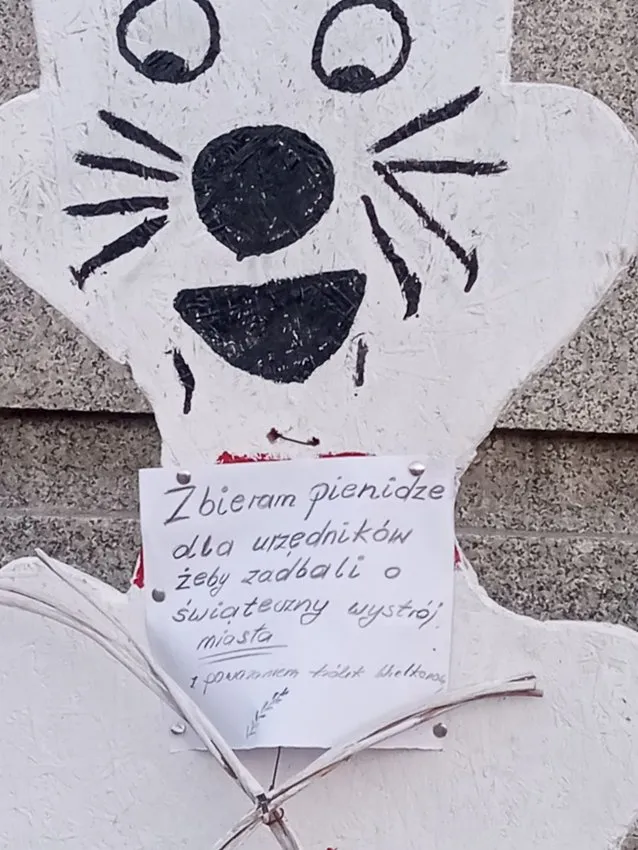 Zbieram pienidze
dla urzędników
żeby zadbali o
świąteczny wystrój
miasta
z poważaniem królik Wielkanocny